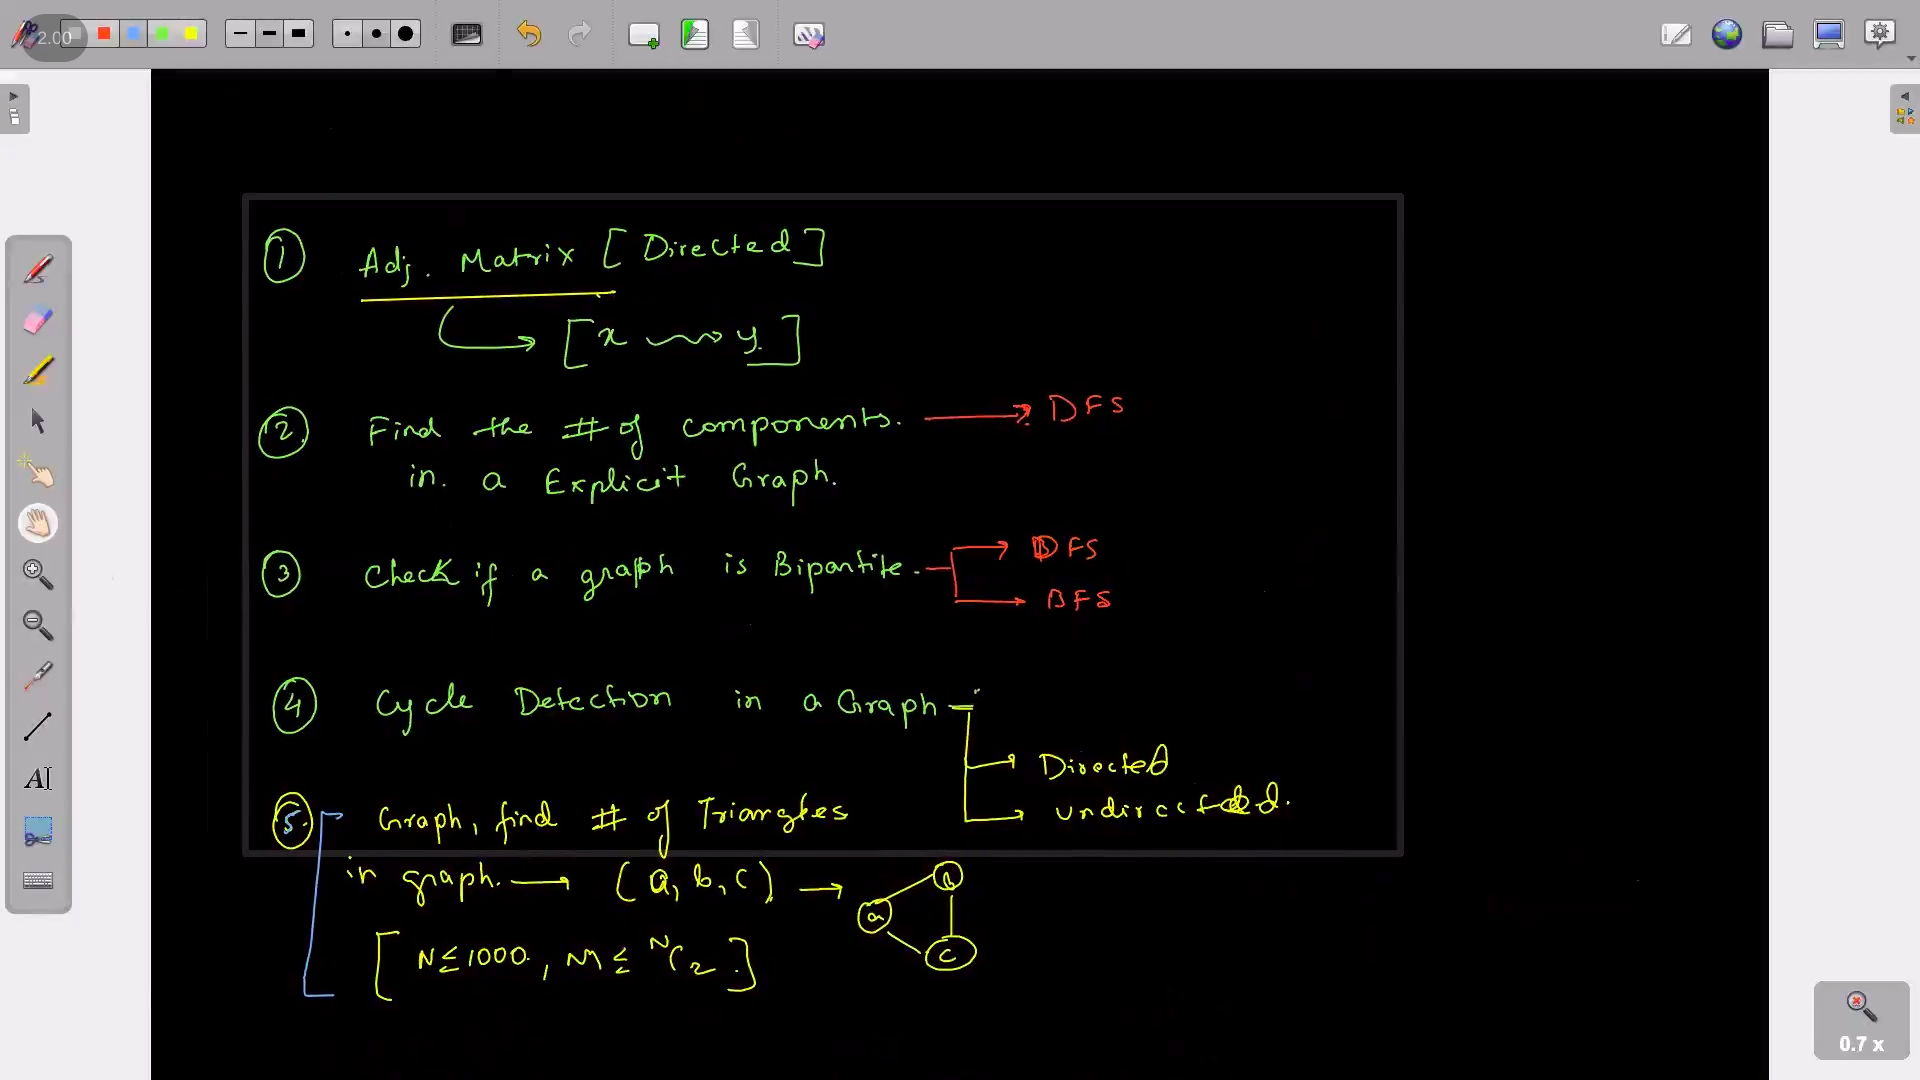 2.00
① Adj. Matrix [Directed]
[x ⟿ y.]
②. Find the # of components. → DFS
in. a Explicit Graph.
③ Check if a graph is Bipartite. → DFS
→ BFS
④ Cycle Detection in a Graph
→ Directed
→ undirected.
⑤. Graph, find # of Triangles
in graph. → (a, b, c) → b
a
c
[N ≤ 1000, M ≤ ᴺC₂.]
AI
0.7 x